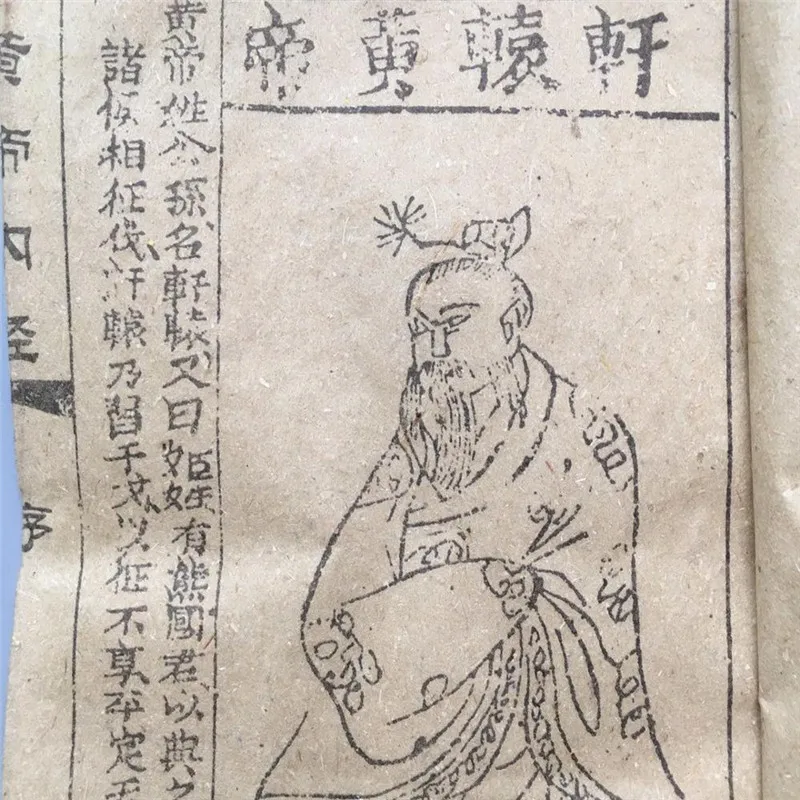 軒轅黄帝
黄帝姓公孫名軒轅又曰姬姓有熊國君以典之
諸侯相征伐軒轅乃習干戈以征不享平定天
黄帝内经
序